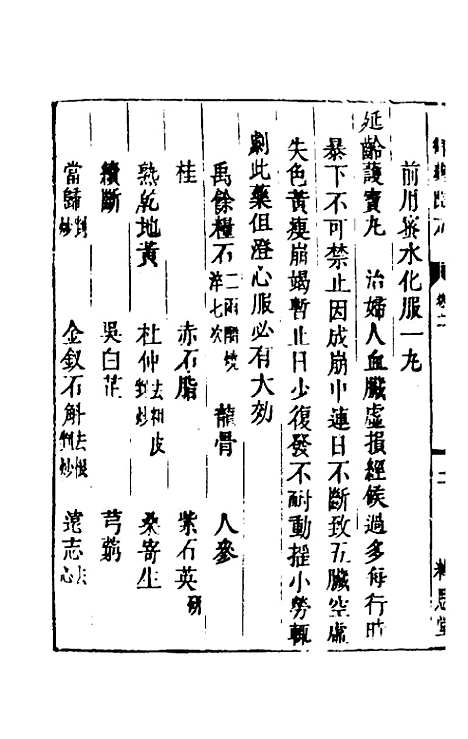 卷二
二
前用蜜水化服一丸
延齡護寶丸　治婦人血臟虛損經候過多每行時
暴下不可禁止因成崩中連日不斷致五臟空虛
失色黃瘦崩竭暫止日少復發不耐動搖小勞輒
劇此藥但澄心服必有大効
禹餘糧石二兩醋燒淬七次　龍骨　人參
桂　赤石脂　紫石英研
熟乾地黃　杜仲去粗皮剉炒　桑寄生
續斷　吳白芷　芎藭
當歸剉炒　金釵石斛去根剉炒　遠志去心